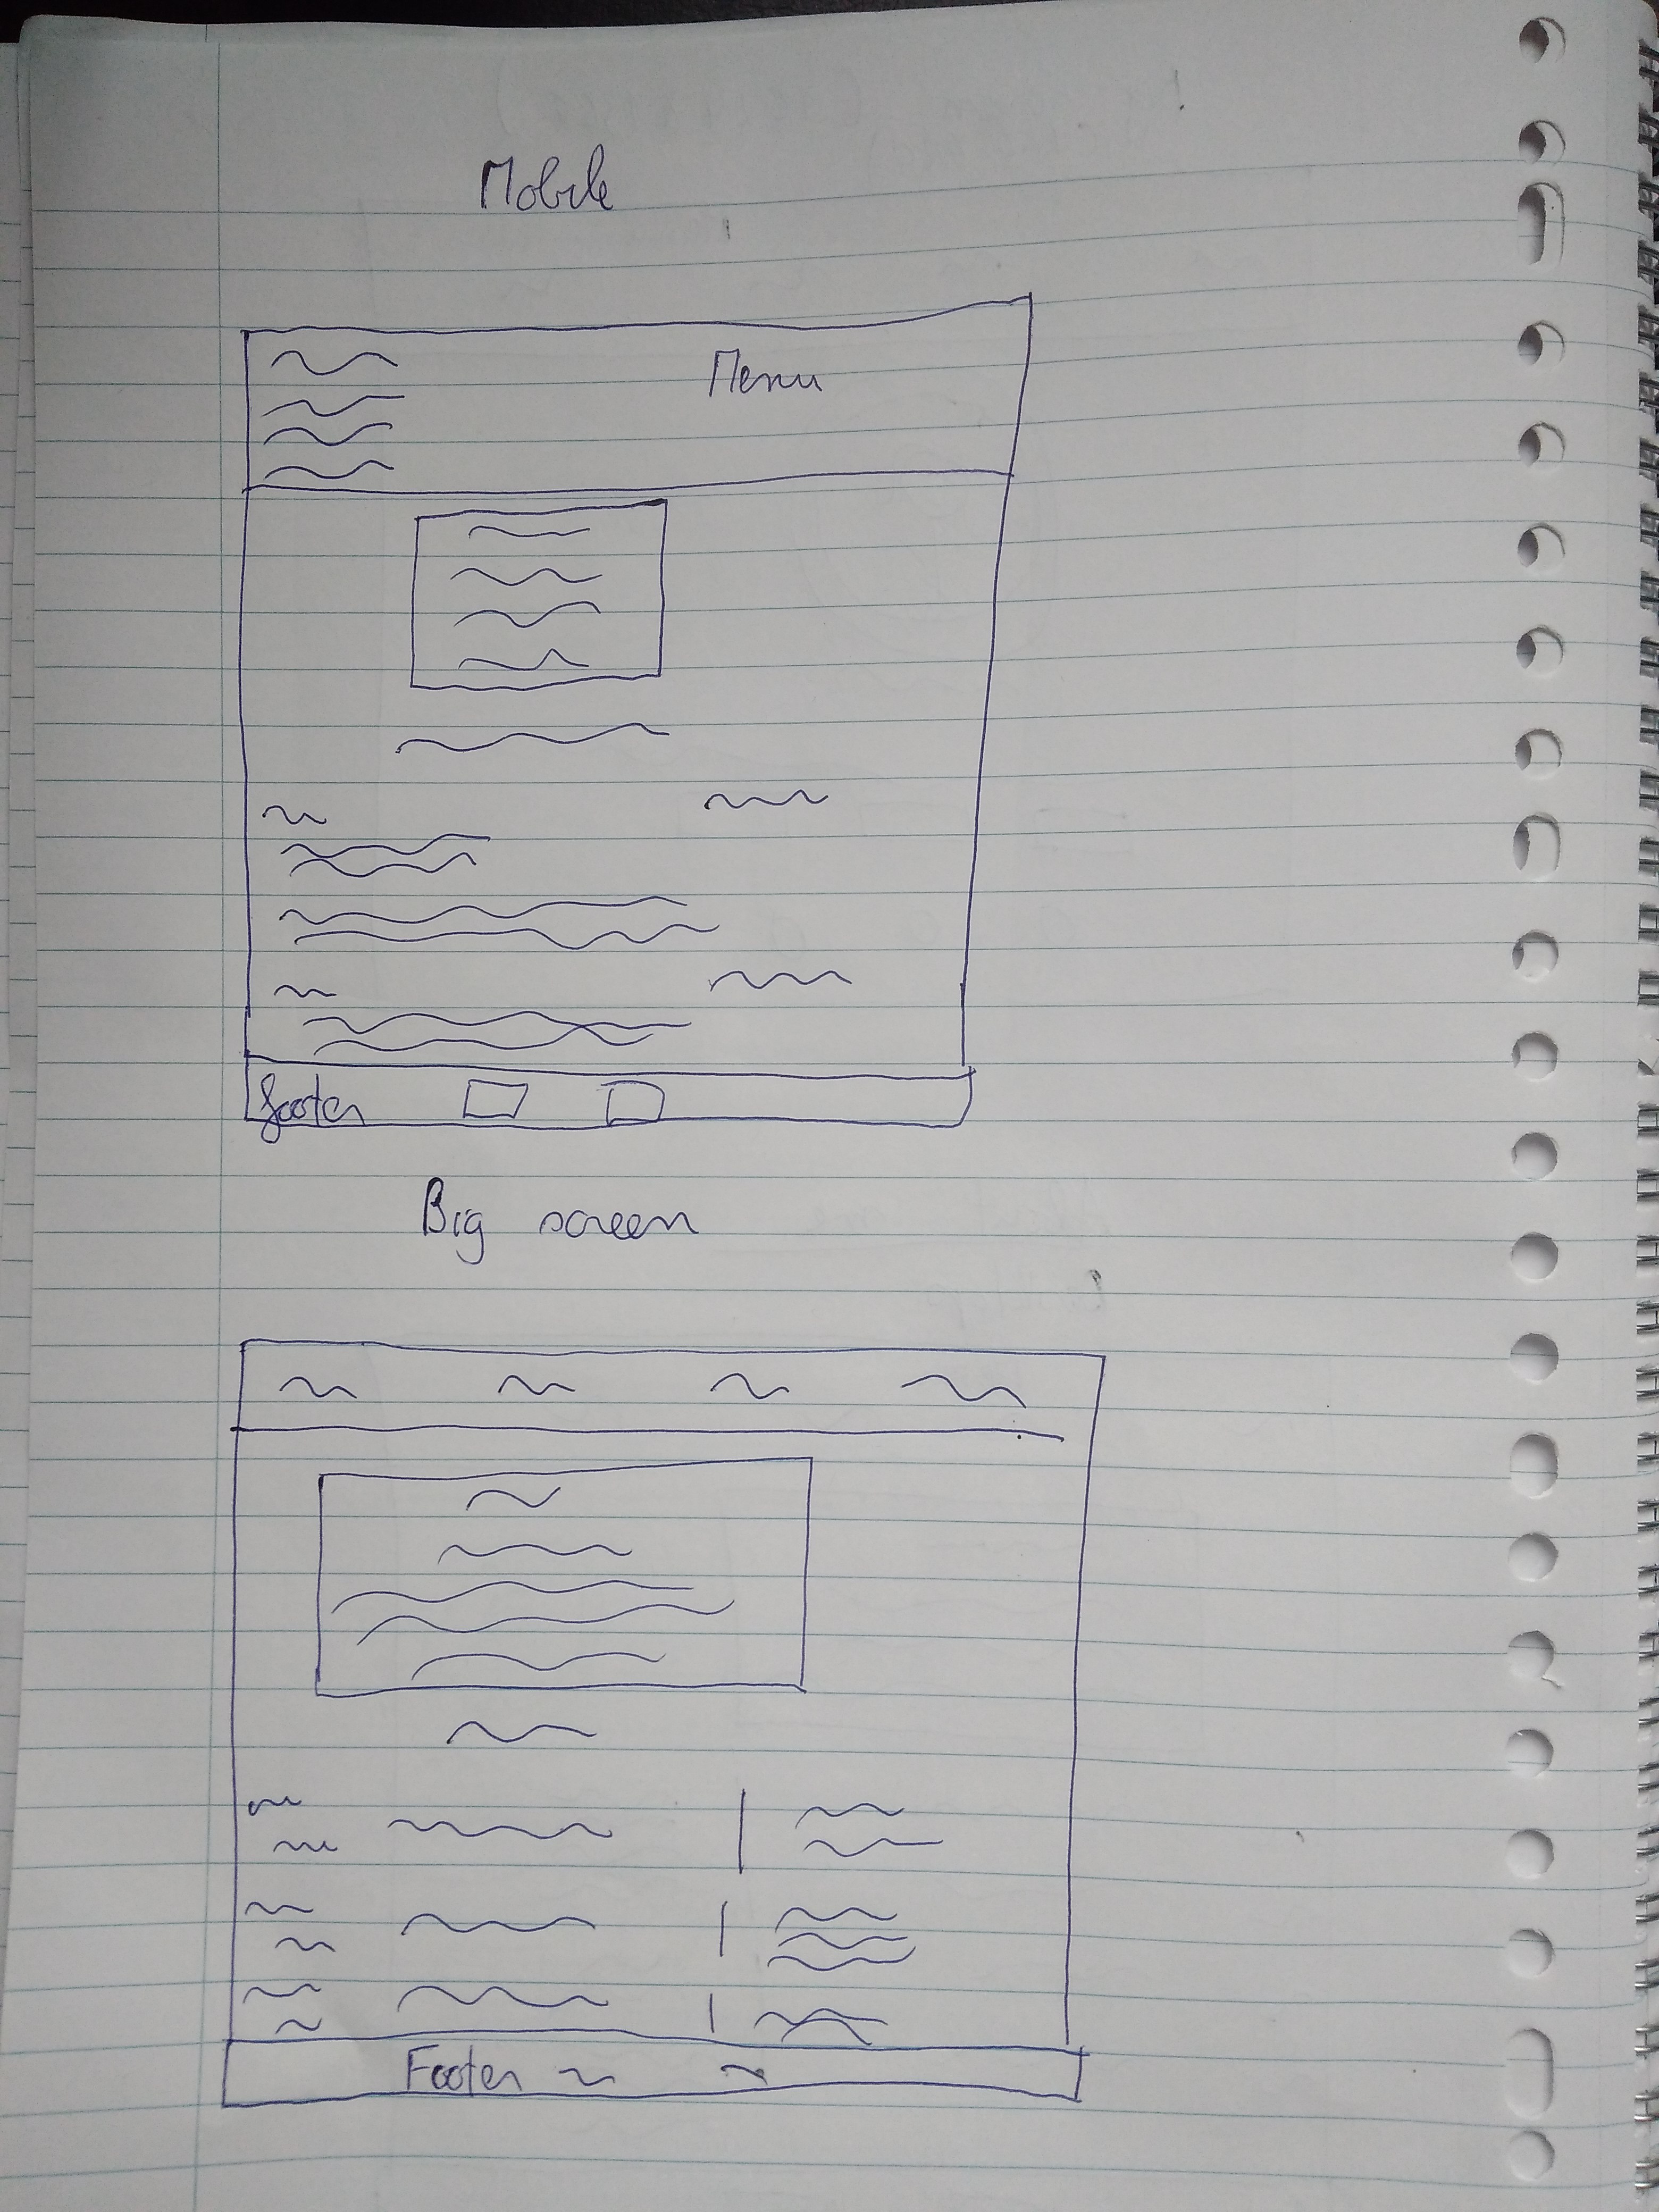 Mobile
Menu
footer
Big screen
Footer